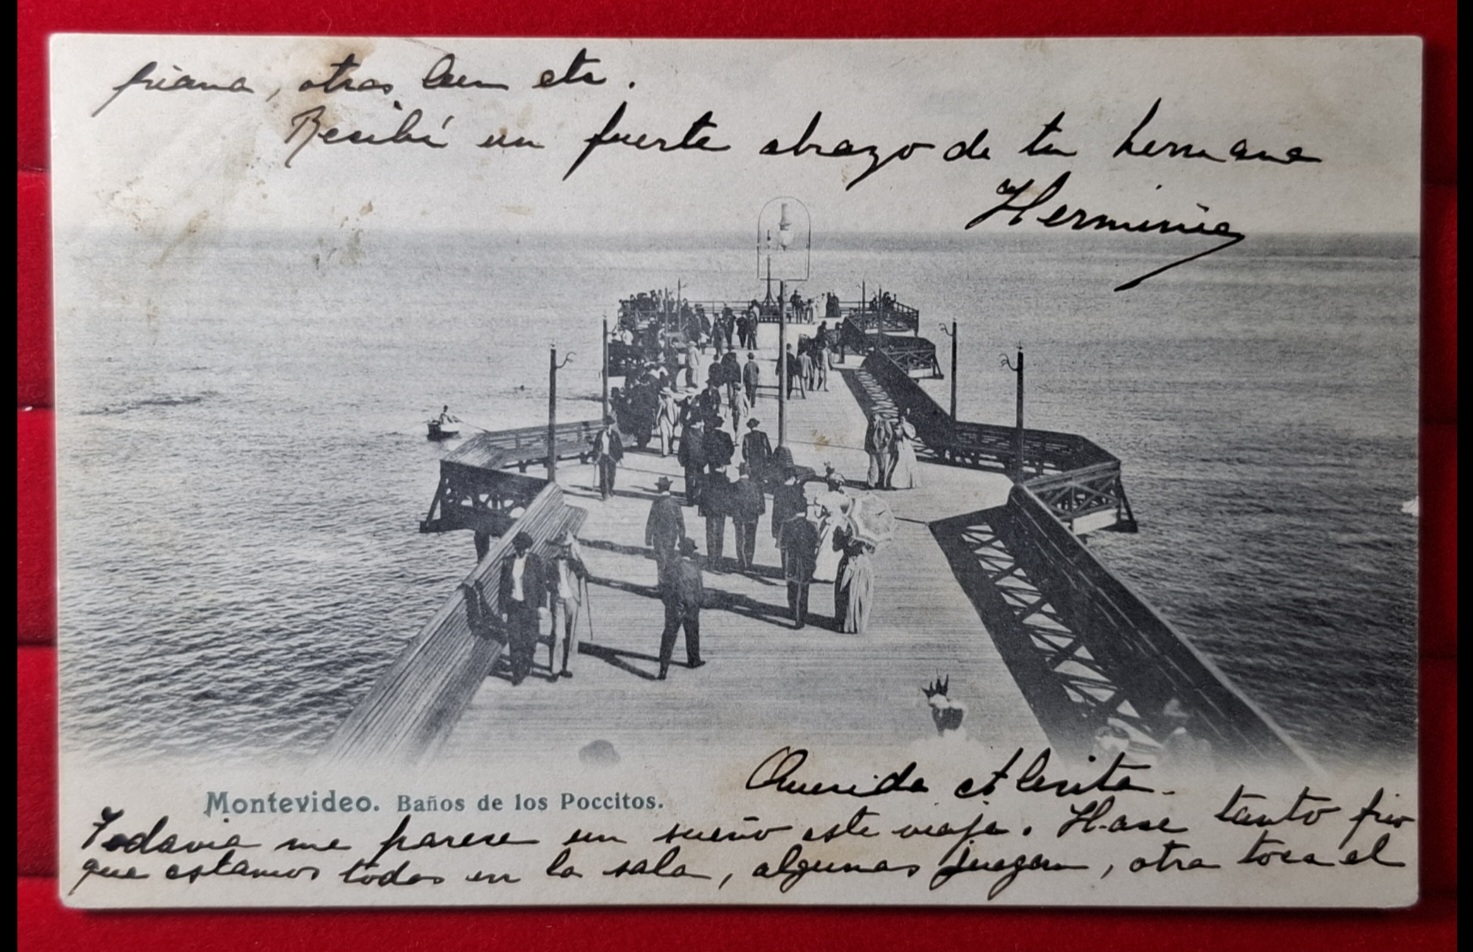 piano, otras leen etc.
Recibí un fuerte abrazo de tu hermana
Herminia
Montevideo. Baños de los Poccitos.
Querida Alcita.
Todavia me parese un sueño este viaje. Hase tanto frio
que estamos todas en la sala, algunas juegan, otra toca el